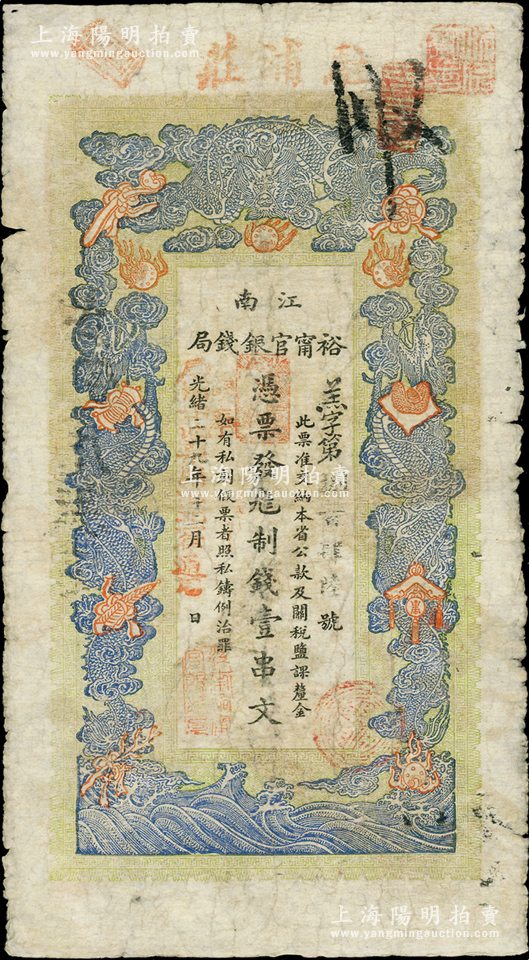 上海陽明拍賣
www.yangmingauction.com
浦莊
江南
裕甯官銀錢局
羔字第 百肆陸號
此票准交納本省公款及關稅鹽課釐金
憑票發足制錢壹串文
如有私刻假票者照私鑄例治罪
光緒二十九年十二月 日
上海陽明拍賣
www.yangmingauction.com